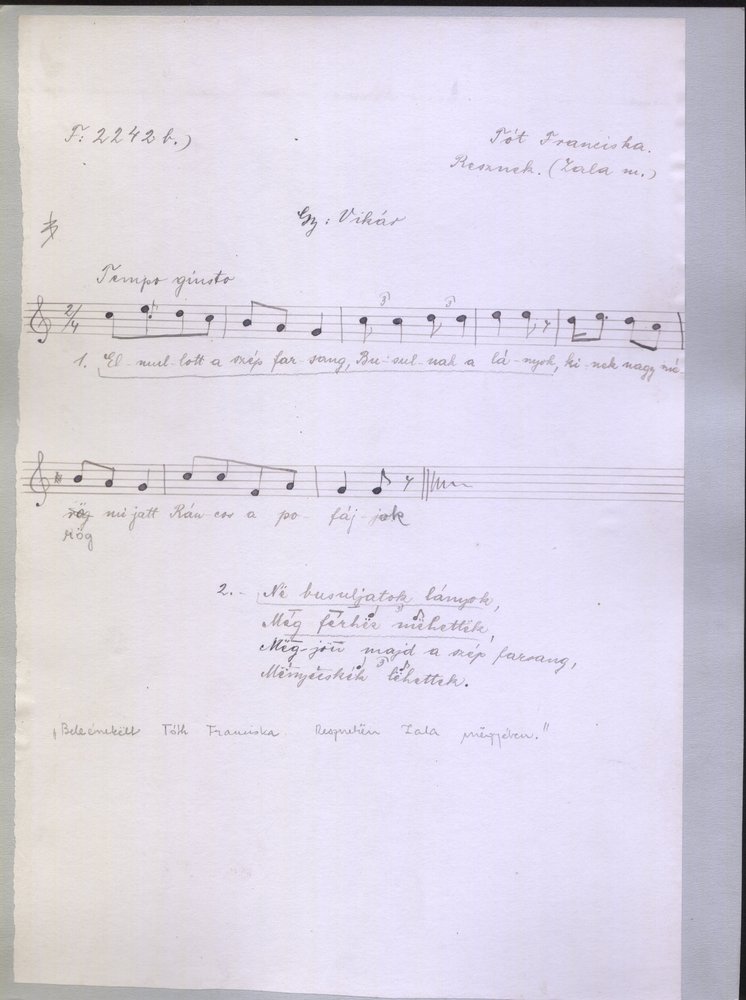 F: 2242 b.)
Tót Franciska.
Resznek. (Zala m.)
Gy: Vikár
Tempo giusto
2/4
3 3
1. El-mul-lott a szép far-sang, Bu-sul-nak a lá-nyok, ki-nek nagy mé-
rög mi jatt Rán-cos a po-fáj-jok
rög
2. - Né busuljatok lányok,
Még férhëz mëhettëk,
3
Mëg-jön majd a szép farsang,
Mënyecskék lëhettek.
3
"Beleénekëlt Tóth Franciska Resznekën Zala mëgyében."